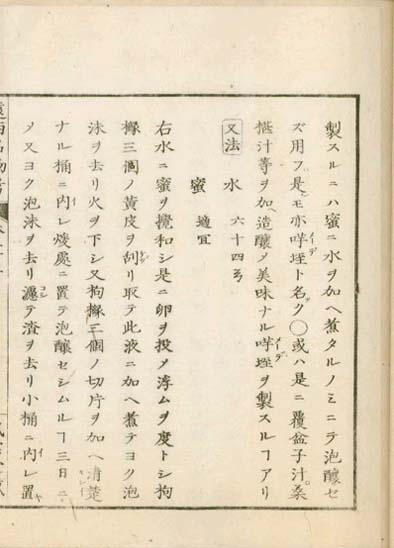 製スルニハ蜜ニ水ヲ加ヘ煮タルノミニテ泡醸セ
ズ用フ是モ亦咩垤ト名ク〇或ハ是ニ覆盆子汁桑
椹汁等ヲ加ヘ造醸メ美味ナル咩垤ヲ製スルヿアリ
又法 水 六十四ヲ
蜜 適宜
右水ニ蜜ヲ攪和シ是ニ卵ヲ投メ浮ムヲ度トシ拘
櫞三個ノ黄皮ヲ刮リ取テ此液ニ加ヘ煮テヨク泡
沫ヲ去リ火ヲ下シ又拘櫞三個ノ切片ヲ加ヘ清楚
ナル桶ニ内レ煖處ニ置テ泡醸セシムルヿ三日ニ
メ又ヨク泡沫ヲ去リ濾テ渣ヲ去リ小桶ニ内レ置
遠西名物考